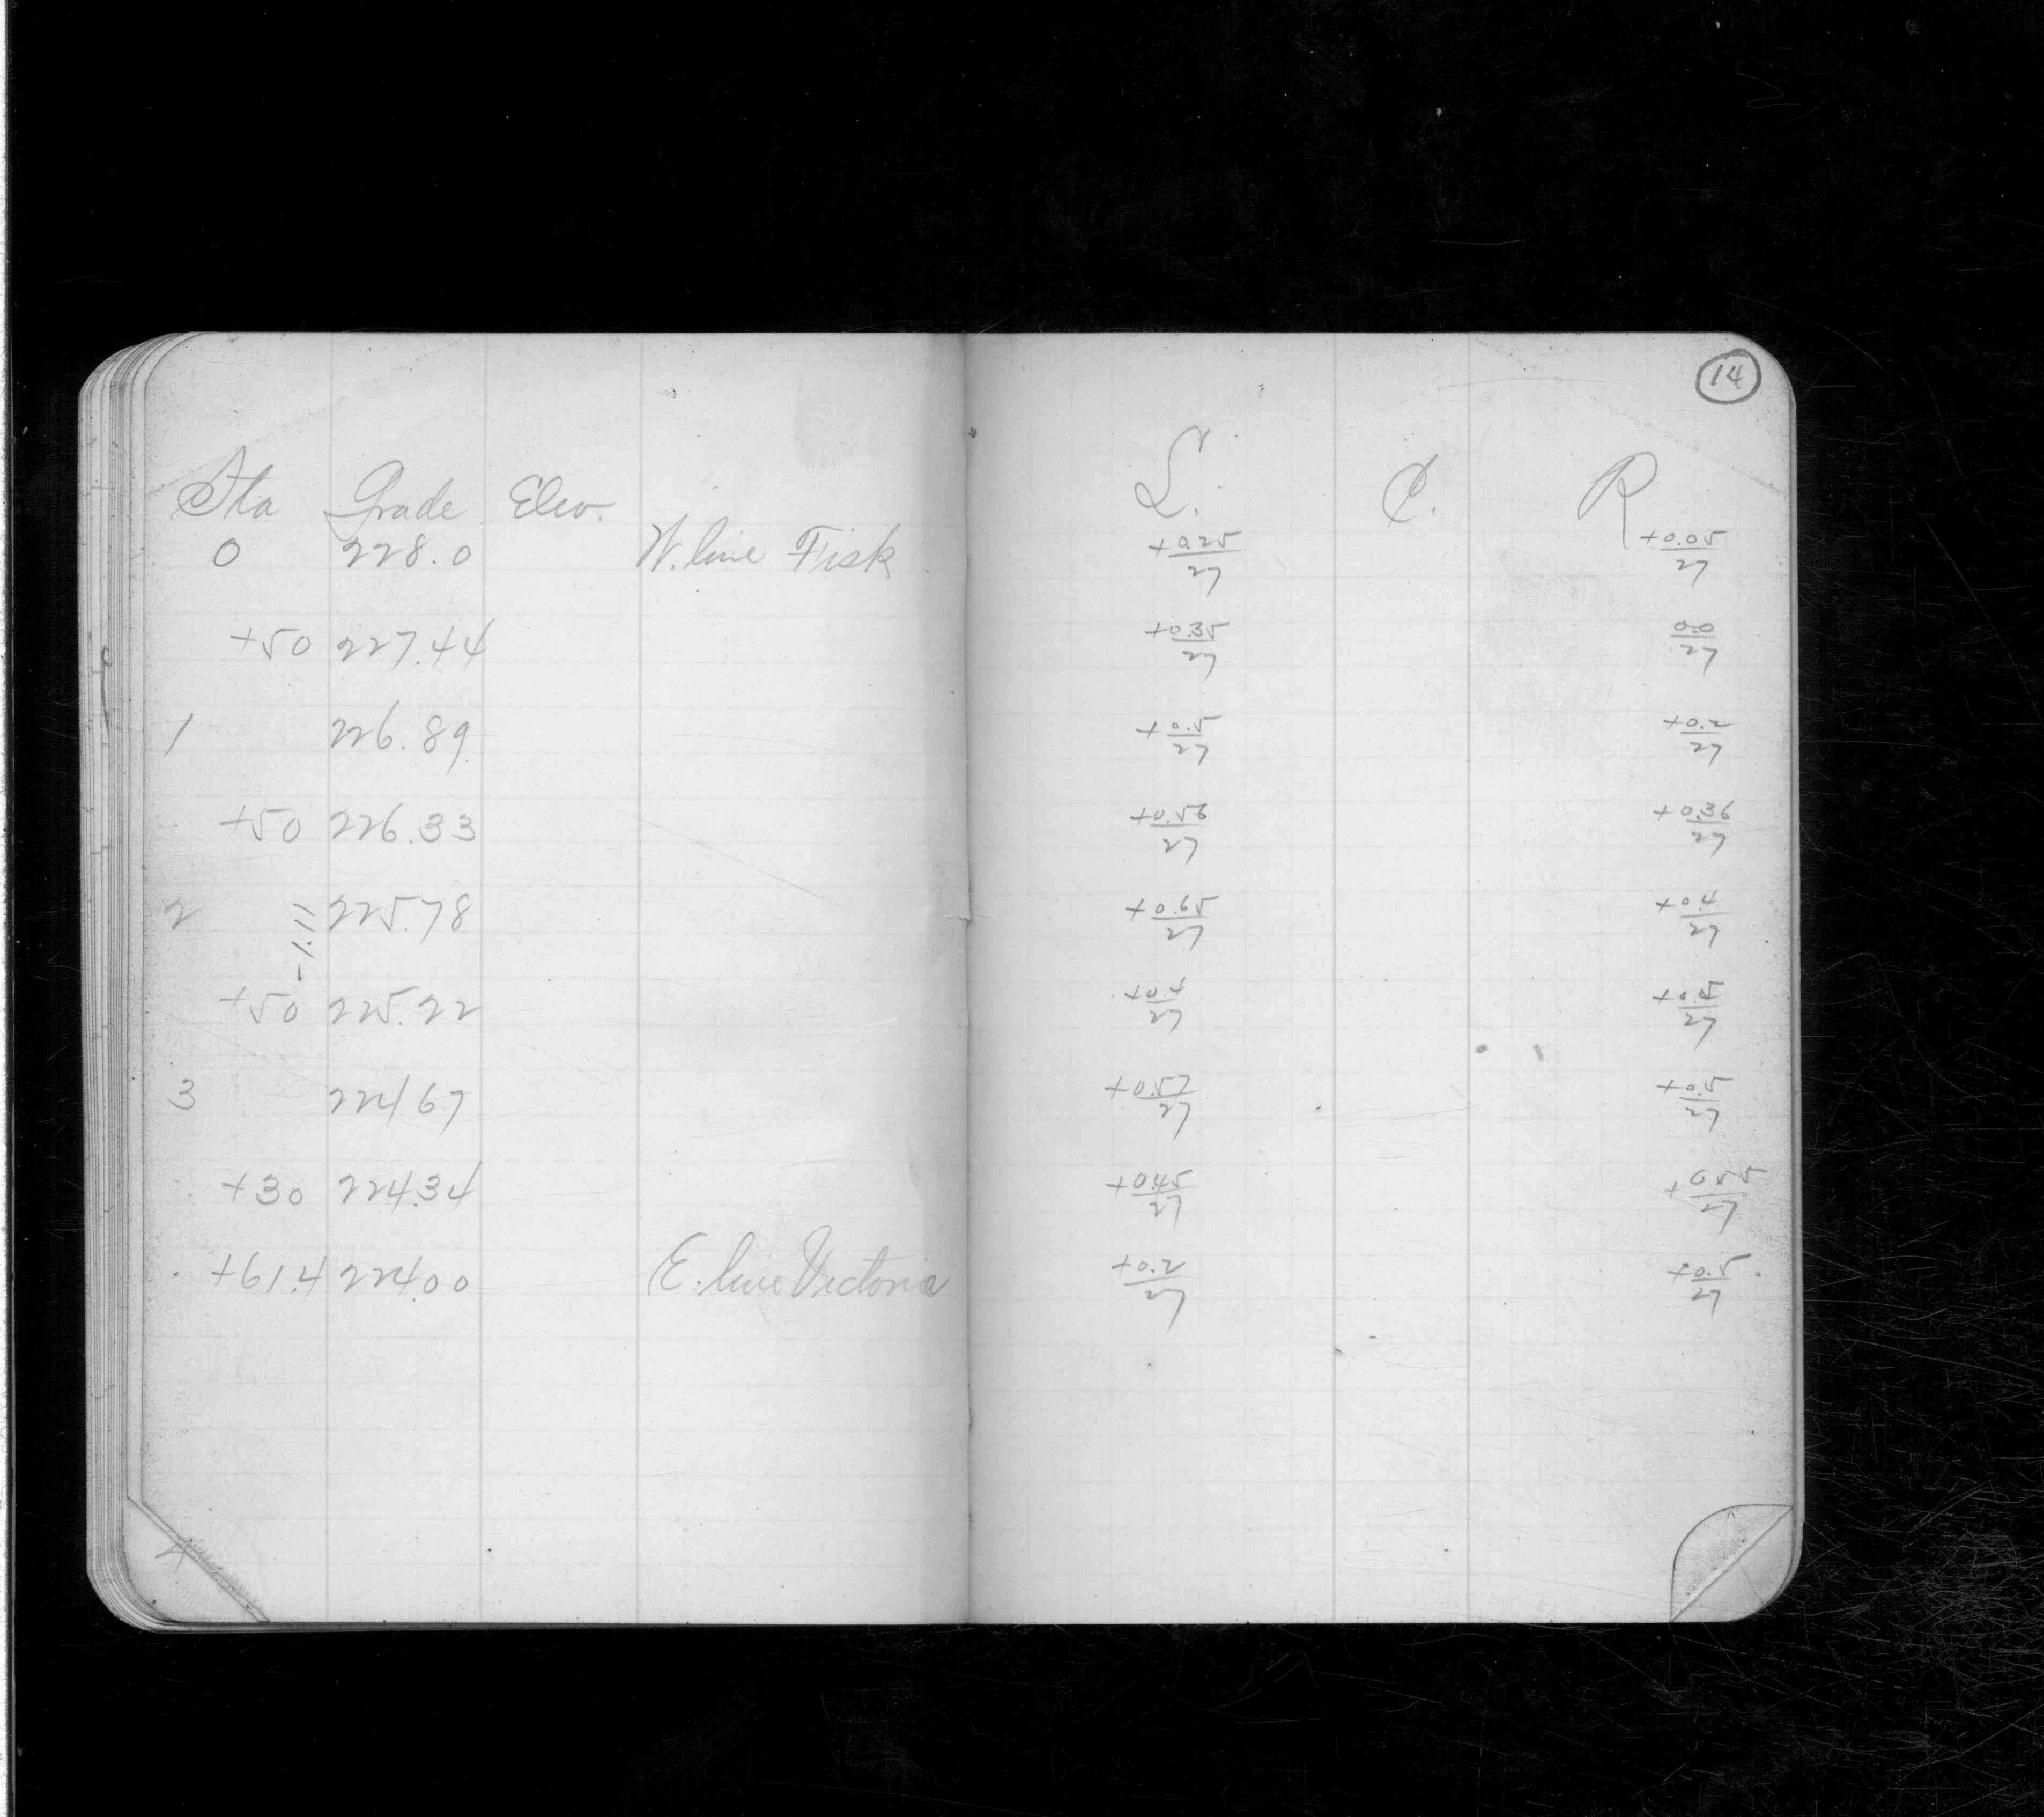 14
Sta Grade Elev. L. ₵. R
0 228.0 W. line Fisk +0.25/27 +0.05/27
+50 227.44 +0.35/27 0.0/27
1 226.89 +0.5/27 +0.2/27
+50 226.33 +0.56/27 +0.36/27
2 225.78 +0.65/27 +0.4/27
-1.11
+50 225.22 +0.4/27 +0.5/27
3 224.67 +0.57/27 +0.5/27
+30 224.34 +0.45/27 +0.55/27
+61.4 224.00 E. line Victoria +0.2/27 +0.5/27